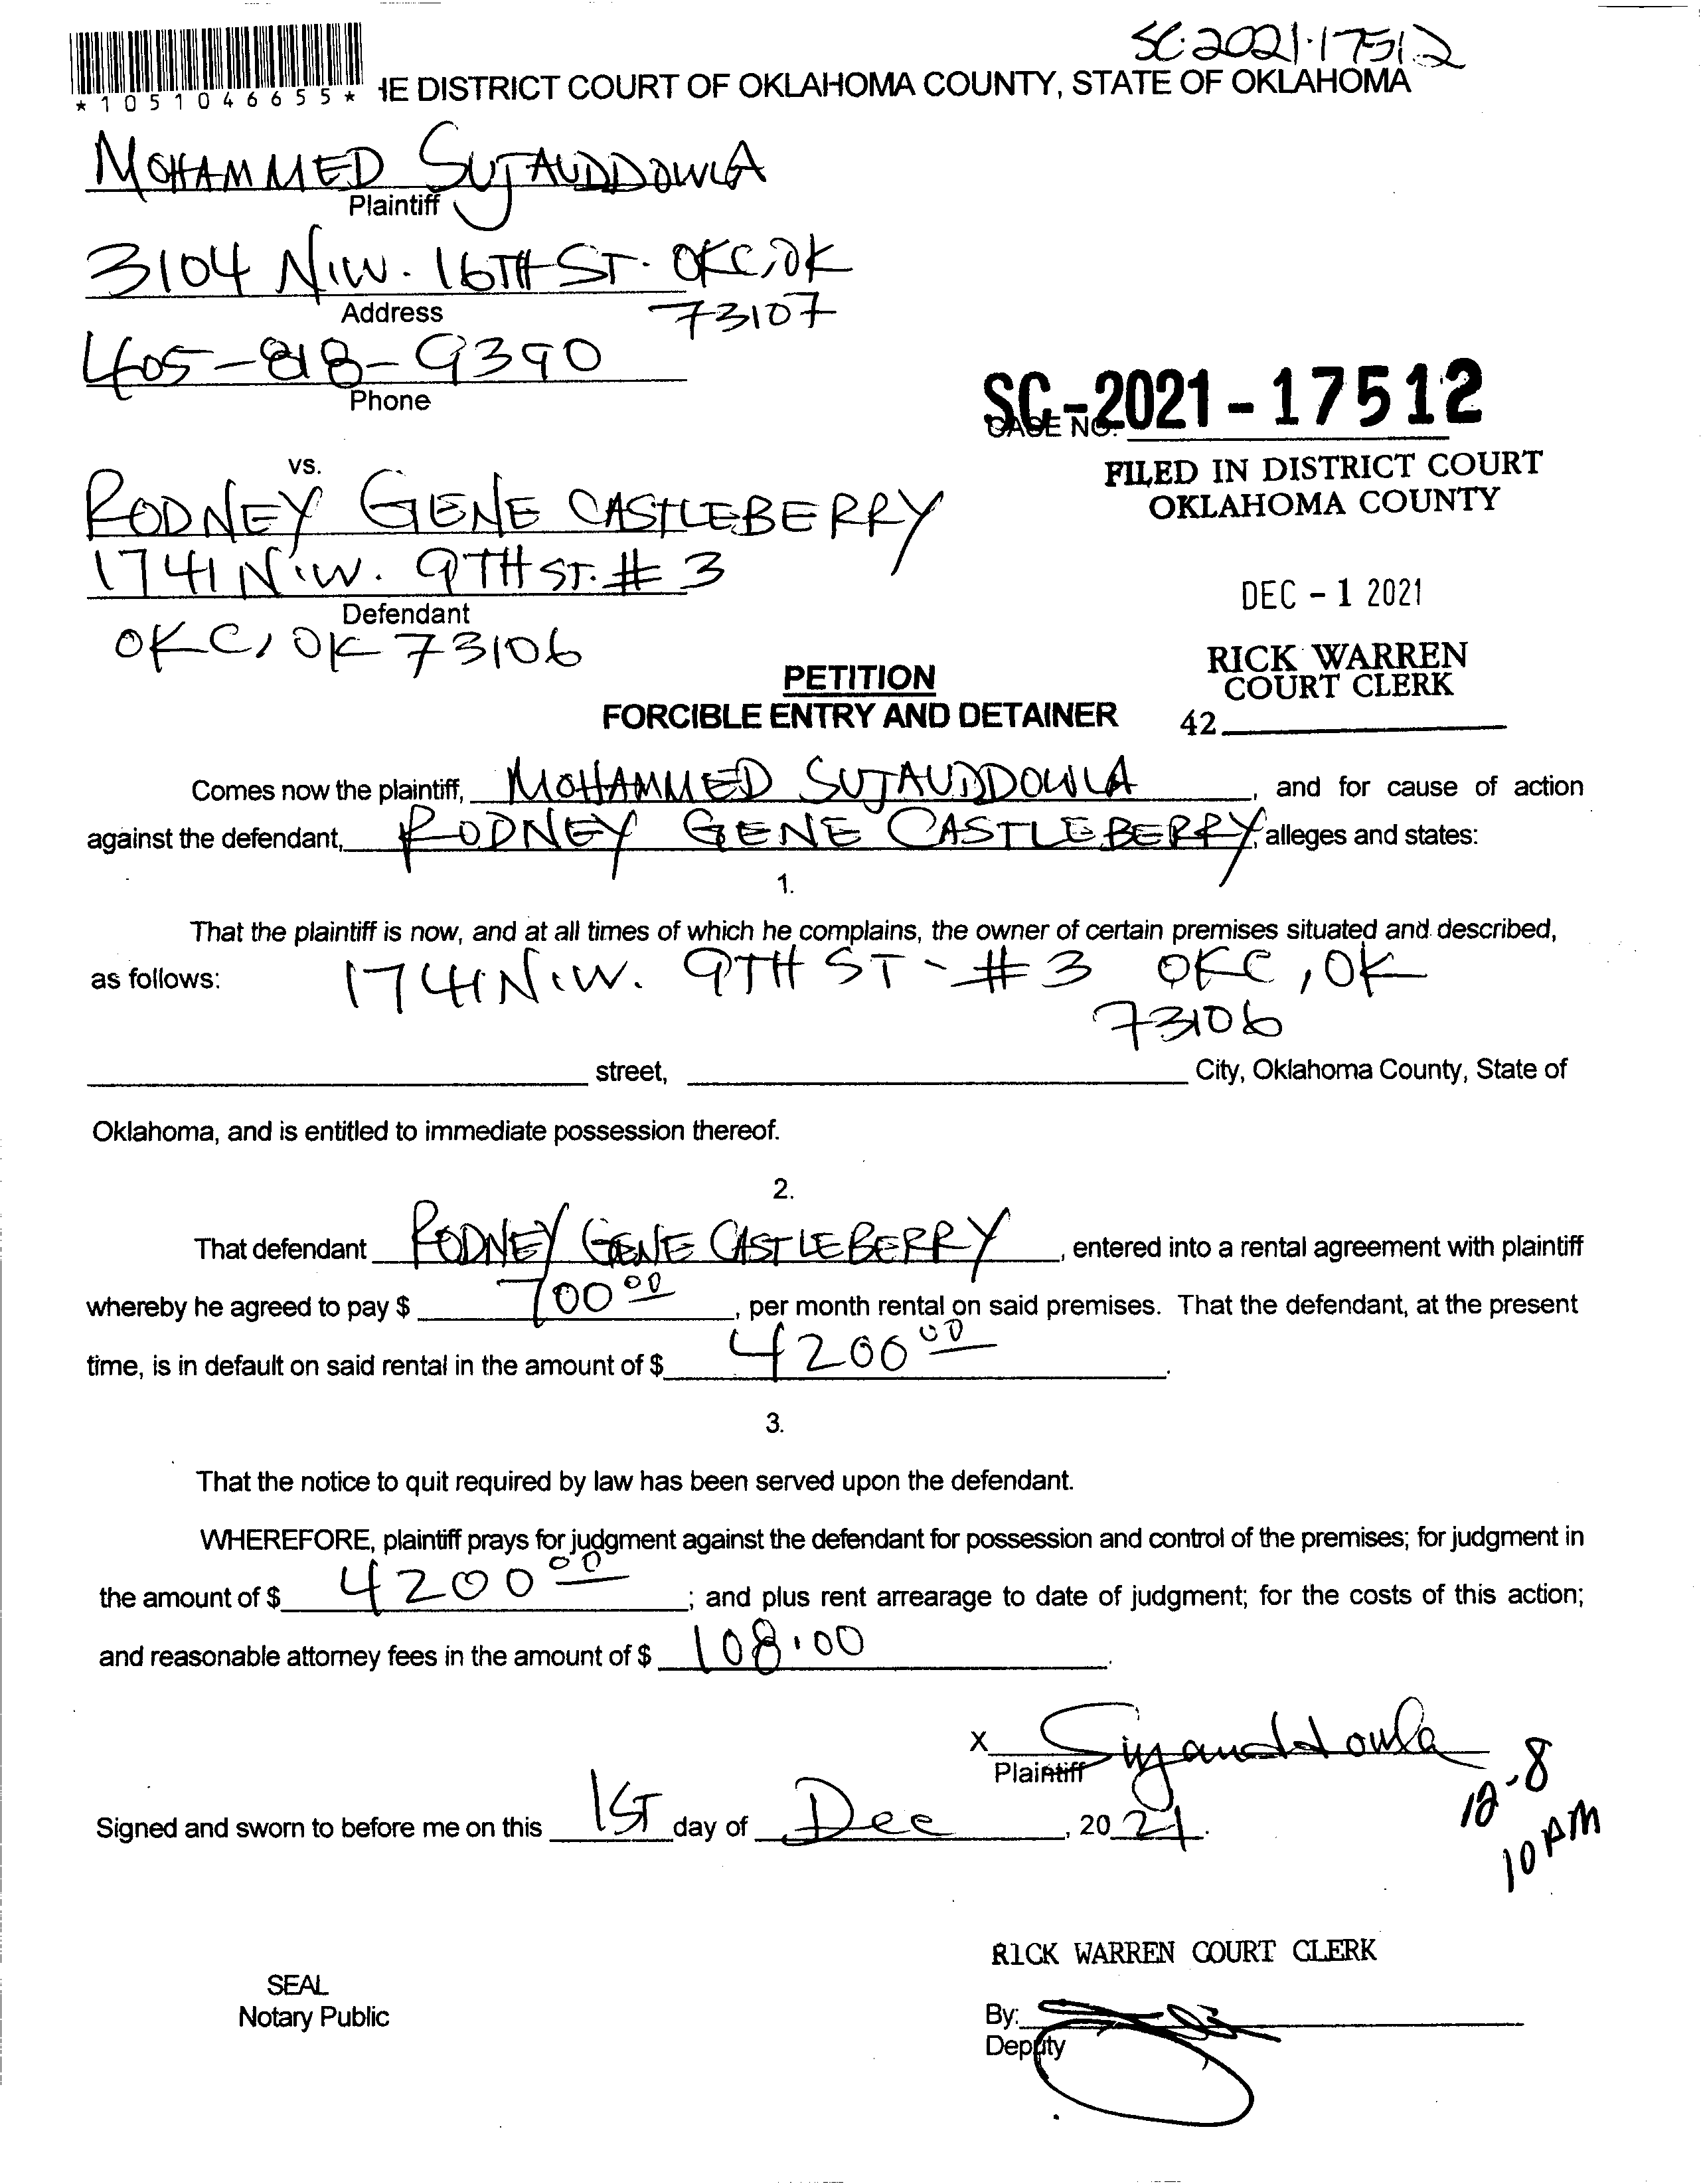 SC-2021-17512
*1051046655* HE DISTRICT COURT OF OKLAHOMA COUNTY, STATE OF OKLAHOMA
MOHAMMED SUJAUDDOWLA
Plaintiff
3104 N.W. 16TH ST. OKC, OK
Address 73107
405-818-9390
Phone
SC-2021-17512
CASE NO.
vs.
FILED IN DISTRICT COURT
OKLAHOMA COUNTY
RODNEY GENE CASTLEBERRY
1741 N.W. 9TH ST. # 3
Defendant
OKC, OK 73106
DEC - 1 2021
RICK WARREN
COURT CLERK
42
PETITION
FORCIBLE ENTRY AND DETAINER
Comes now the plaintiff, MOHAMMED SUJAUDDOWLA, and for cause of action
against the defendant, RODNEY GENE CASTLEBERRY, alleges and states:
1.
That the plaintiff is now, and at all times of which he complains, the owner of certain premises situated and described,
as follows: 1741 N.W. 9TH ST - # 3 OKC, OK
73106
street, City, Oklahoma County, State of
Oklahoma, and is entitled to immediate possession thereof.
2.
That defendant RODNEY GENE CASTLEBERRY, entered into a rental agreement with plaintiff
whereby he agreed to pay $ 700 00, per month rental on said premises. That the defendant, at the present
time, is in default on said rental in the amount of $ 4200 00.
3.
That the notice to quit required by law has been served upon the defendant.
WHEREFORE, plaintiff prays for judgment against the defendant for possession and control of the premises; for judgment in
the amount of $ 4200 00; and plus rent arrearage to date of judgment; for the costs of this action;
and reasonable attorney fees in the amount of $ 108.00.
x Sujauddowla
Plaintiff
12-8
10 AM
Signed and sworn to before me on this 1ST day of Dec, 2021.
RICK WARREN COURT CLERK
SEAL
Notary Public
By:
Deputy